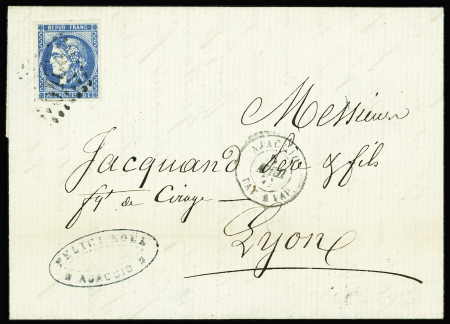 REPUB. FRANC.
Messieur
Jacquand Père & fils
fqt de Cirage
Lyon
AJACCIO
PAQ. A VAP.
FELICI NOËL
AJACCIO